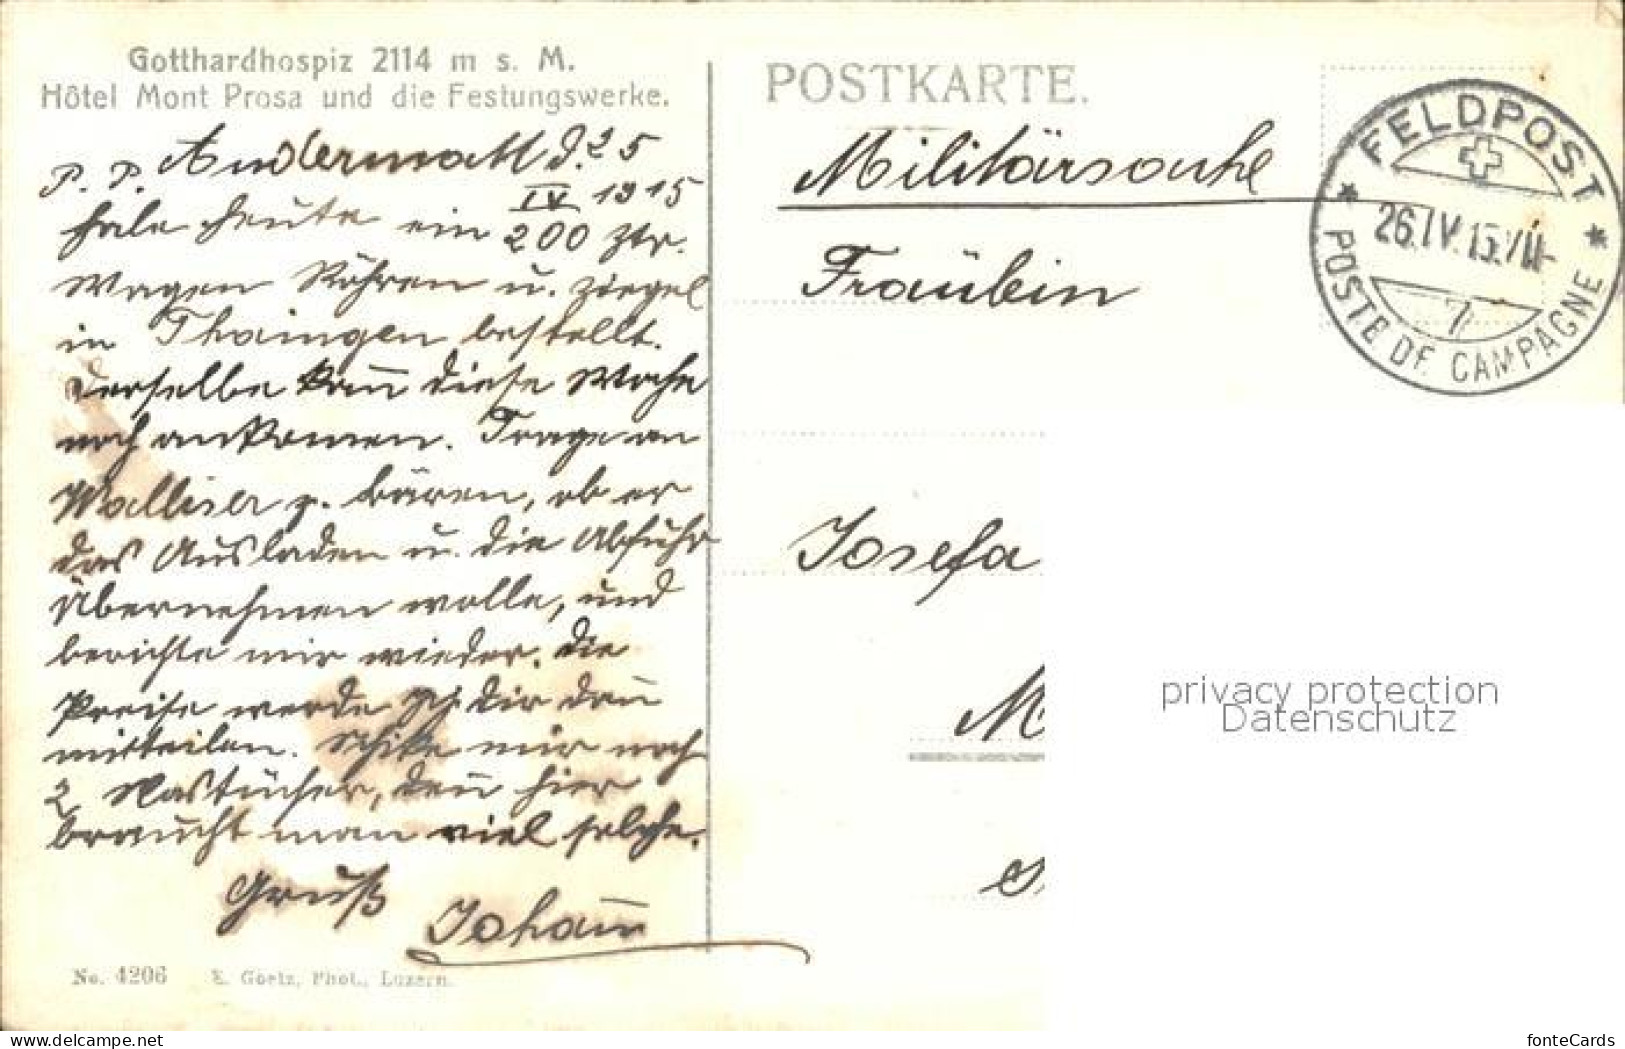 Gotthardhospiz 2114 m s. M.
Hôtel Mont Prosa und die Festungswerke.
POSTKARTE.
P. P. Andermatt d. 25
IV 1915
heute ein 200 Ztr.
Wagen Röhren u. Ziegel
in Thaingen bestellt.
Derselbe kan̄ diese Woche
noch ankomen. Frage an
Walliser z. Bären, ob er
das Ausladen u. die Abfuhr
übernehmen wolle, und
berichte mir wieder. Die
Preise werde ich dir dan̄
mitteilen. Schike mir noch
2 Nastücher, den̄ hier
braucht man viel solche.
Gruß
Johan̄
No. 4206 E. Goetz, Phot., Luzern.
Militärsache
Fräulein
Josefa
M
FELDPOST
26.IV.15.VII-
7
POSTE DE CAMPAGNE
privacy protection
Datenschutz
www.delcampe.net
fonteCards